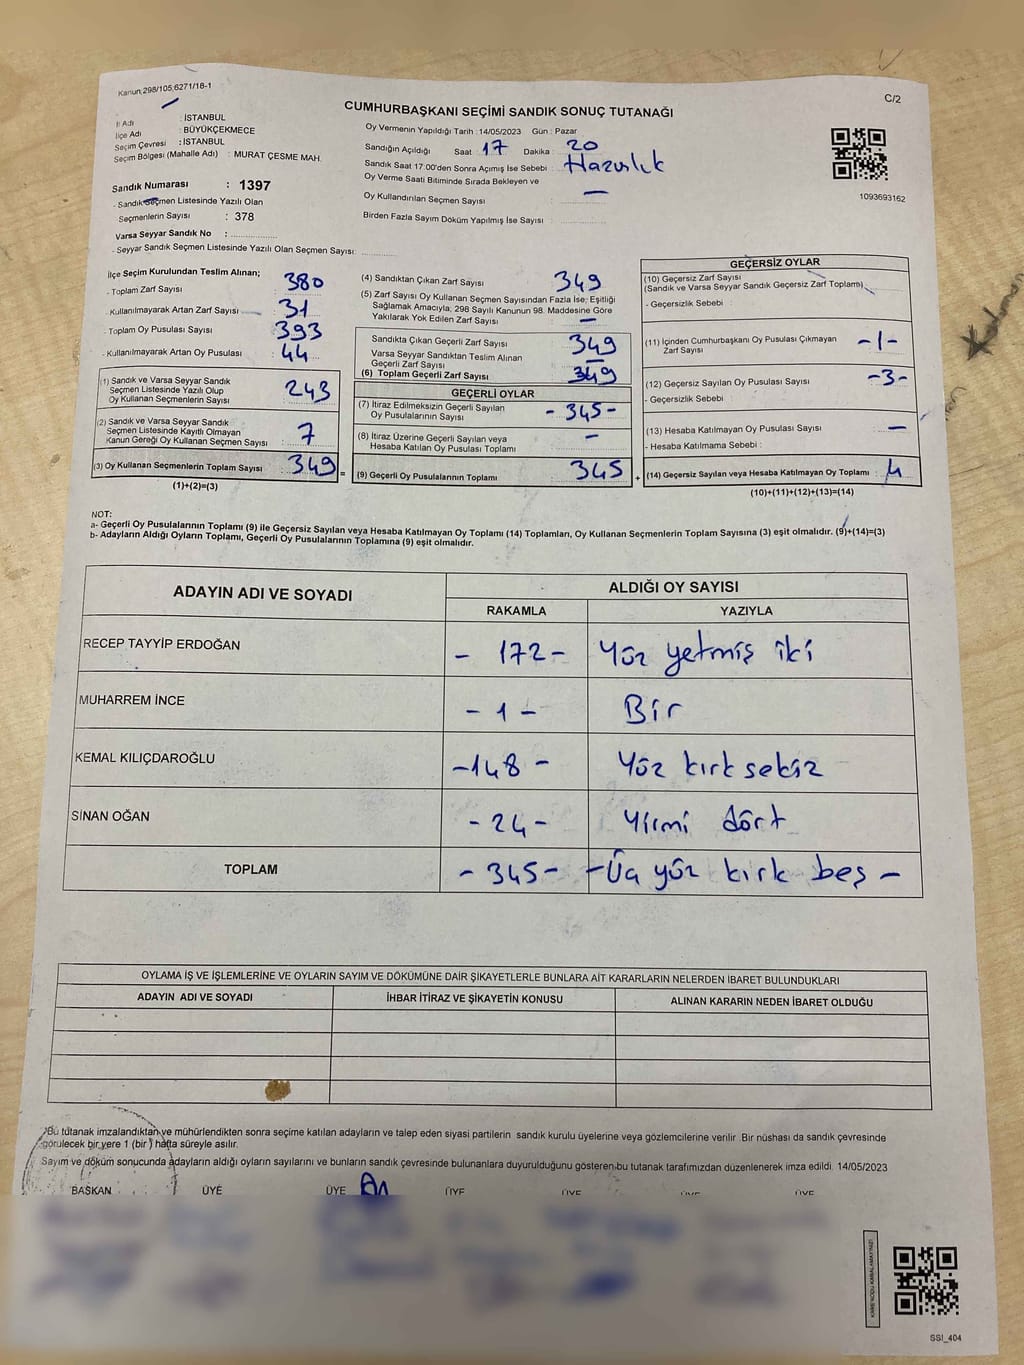 Kanun,298/105,6271/18-1
C/2
CUMHURBAŞKANI SEÇİMİ SANDIK SONUÇ TUTANAĞI
İl Adı : İSTANBUL
İlçe Adı : BÜYÜKÇEKMECE
Seçim Çevresi : İSTANBUL
Seçim Bölgesi (Mahalle Adı) : MURAT ÇESME MAH.
Sandık Numarası : 1397
- Sandık Seçmen Listesinde Yazılı Olan
Seçmenlerin Sayısı : 378
Varsa Seyyar Sandık No :
- Seyyar Sandık Seçmen Listesinde Yazılı Olan Seçmen Sayısı:
Oy Vermenin Yapıldığı Tarih :14/05/2023 Gün : Pazar
Sandığın Açıldığı Saat 17 Dakika : 20
Sandık Saat 17:00'den Sonra Açımış İse Sebebi : Hazırlık
Oy Verme Saati Bitiminde Sırada Bekleyen ve
Oy Kullandırılan Seçmen Sayısı : —
Birden Fazla Sayım Döküm Yapılmış İse Sayısı :
1093693162
İlçe Seçim Kurulundan Teslim Alınan;
- Toplam Zarf Sayısı : 380
- Kullanılmayarak Artan Zarf Sayısı : 31
- Toplam Oy Pusulası Sayısı : 393
- Kullanılmayarak Artan Oy Pusulası : 44
(1) Sandık ve Varsa Seyyar Sandık
Seçmen Listesinde Yazılı Olup
Oy Kullanan Seçmenlerin Sayısı : 243
(2) Sandık ve Varsa Seyyar Sandık
Seçmen Listesinde Kayıtlı Olmayan
Kanun Gereği Oy Kullanan Seçmen Sayısı : 7
(3) Oy Kullanan Seçmenlerin Toplam Sayısı : 349 =
(1)+(2)=(3)
(4) Sandıktan Çıkan Zarf Sayısı : 349
(5) Zarf Sayısı Oy Kullanan Seçmen Sayısından Fazla İse, Eşitliği
Sağlamak Amacıyla, 298 Sayılı Kanunun 98. Maddesine Göre
Yakılarak Yok Edilen Zarf Sayısı : —
Sandıkta Çıkan Geçerli Zarf Sayısı : 349
Varsa Seyyar Sandıktan Teslim Alınan
Geçerli Zarf Sayısı : —
(6) Toplam Geçerli Zarf Sayısı : 349
GEÇERLİ OYLAR
(7) İtiraz Edilmeksizin Geçerli Sayılan
Oy Pusulalarının Sayısı : - 345 -
(8) İtiraz Üzerine Geçerli Sayılan veya
Hesaba Katılan Oy Pusulası Toplamı : —
(9) Geçerli Oy Pusulalarının Toplamı : 345 +
GEÇERSİZ OYLAR
(10) Geçersiz Zarf Sayısı
(Sandık ve Varsa Seyyar Sandık Geçersiz Zarf Toplamı)
- Geçersizlik Sebebi :
(11) İçinden Cumhurbaşkanı Oy Pusulası Çıkmayan
Zarf Sayısı : - 1 -
(12) Geçersiz Sayılan Oy Pusulası Sayısı : - 3 -
- Geçersizlik Sebebi
(13) Hesaba Katılmayan Oy Pusulası Sayısı : —
- Hesaba Katılmama Sebebi :
(14) Geçersiz Sayılan veya Hesaba Katılmayan Oy Toplamı : 4
(10)+(11)+(12)+(13)=(14)
NOT:
a- Geçerli Oy Pusulalarının Toplamı (9) ile Geçersiz Sayılan veya Hesaba Katılmayan Oy Toplamı (14) Toplamları, Oy Kullanan Seçmenlerin Toplam Sayısına (3) eşit olmalıdır. (9)+(14)=(3)
b- Adayların Aldığı Oyların Toplamı, Geçerli Oy Pusulalarının Toplamına (9) eşit olmalıdır.
ADAYIN ADI VE SOYADI
ALDIĞI OY SAYISI
RAKAMLA YAZIYLA
RECEP TAYYİP ERDOĞAN - 172 - Yüz yetmiş iki
MUHARREM İNCE - 1 - Bir
KEMAL KILIÇDAROĞLU - 148 - Yüz kırk sekiz
SİNAN OĞAN - 24 - Yirmi dört
TOPLAM - 345 - - Üç yüz kırk beş -
OYLAMA İŞ VE İŞLEMLERİNE VE OYLARIN SAYIM VE DÖKÜMÜNE DAİR ŞİKAYETLERLE BUNLARA AİT KARARLARIN NELERDEN İBARET BULUNDUKLARI
ADAYIN ADI VE SOYADI İHBAR İTİRAZ VE ŞİKAYETİN KONUSU ALINAN KARARIN NEDEN İBARET OLDUĞU
*Bu tutanak imzalandıktan ve mühürlendikten sonra seçime katılan adayların ve talep eden siyasi partilerin sandık kurulu üyelerine veya gözlemcilerine verilir. Bir nüshası da sandık çevresinde
görülecek bir yere 1 (bir ) hafta süreyle asılır.
Sayım ve döküm sonucunda adayların aldığı oyların sayılarını ve bunların sandık çevresinde bulunanlara duyurulduğunu gösteren bu tutanak tarafımızdan düzenlenerek imza edildi. 14/05/2023
BAŞKAN ÜYE ÜYE ÜYE ÜYE ÜYE ÜYE
SSI_404